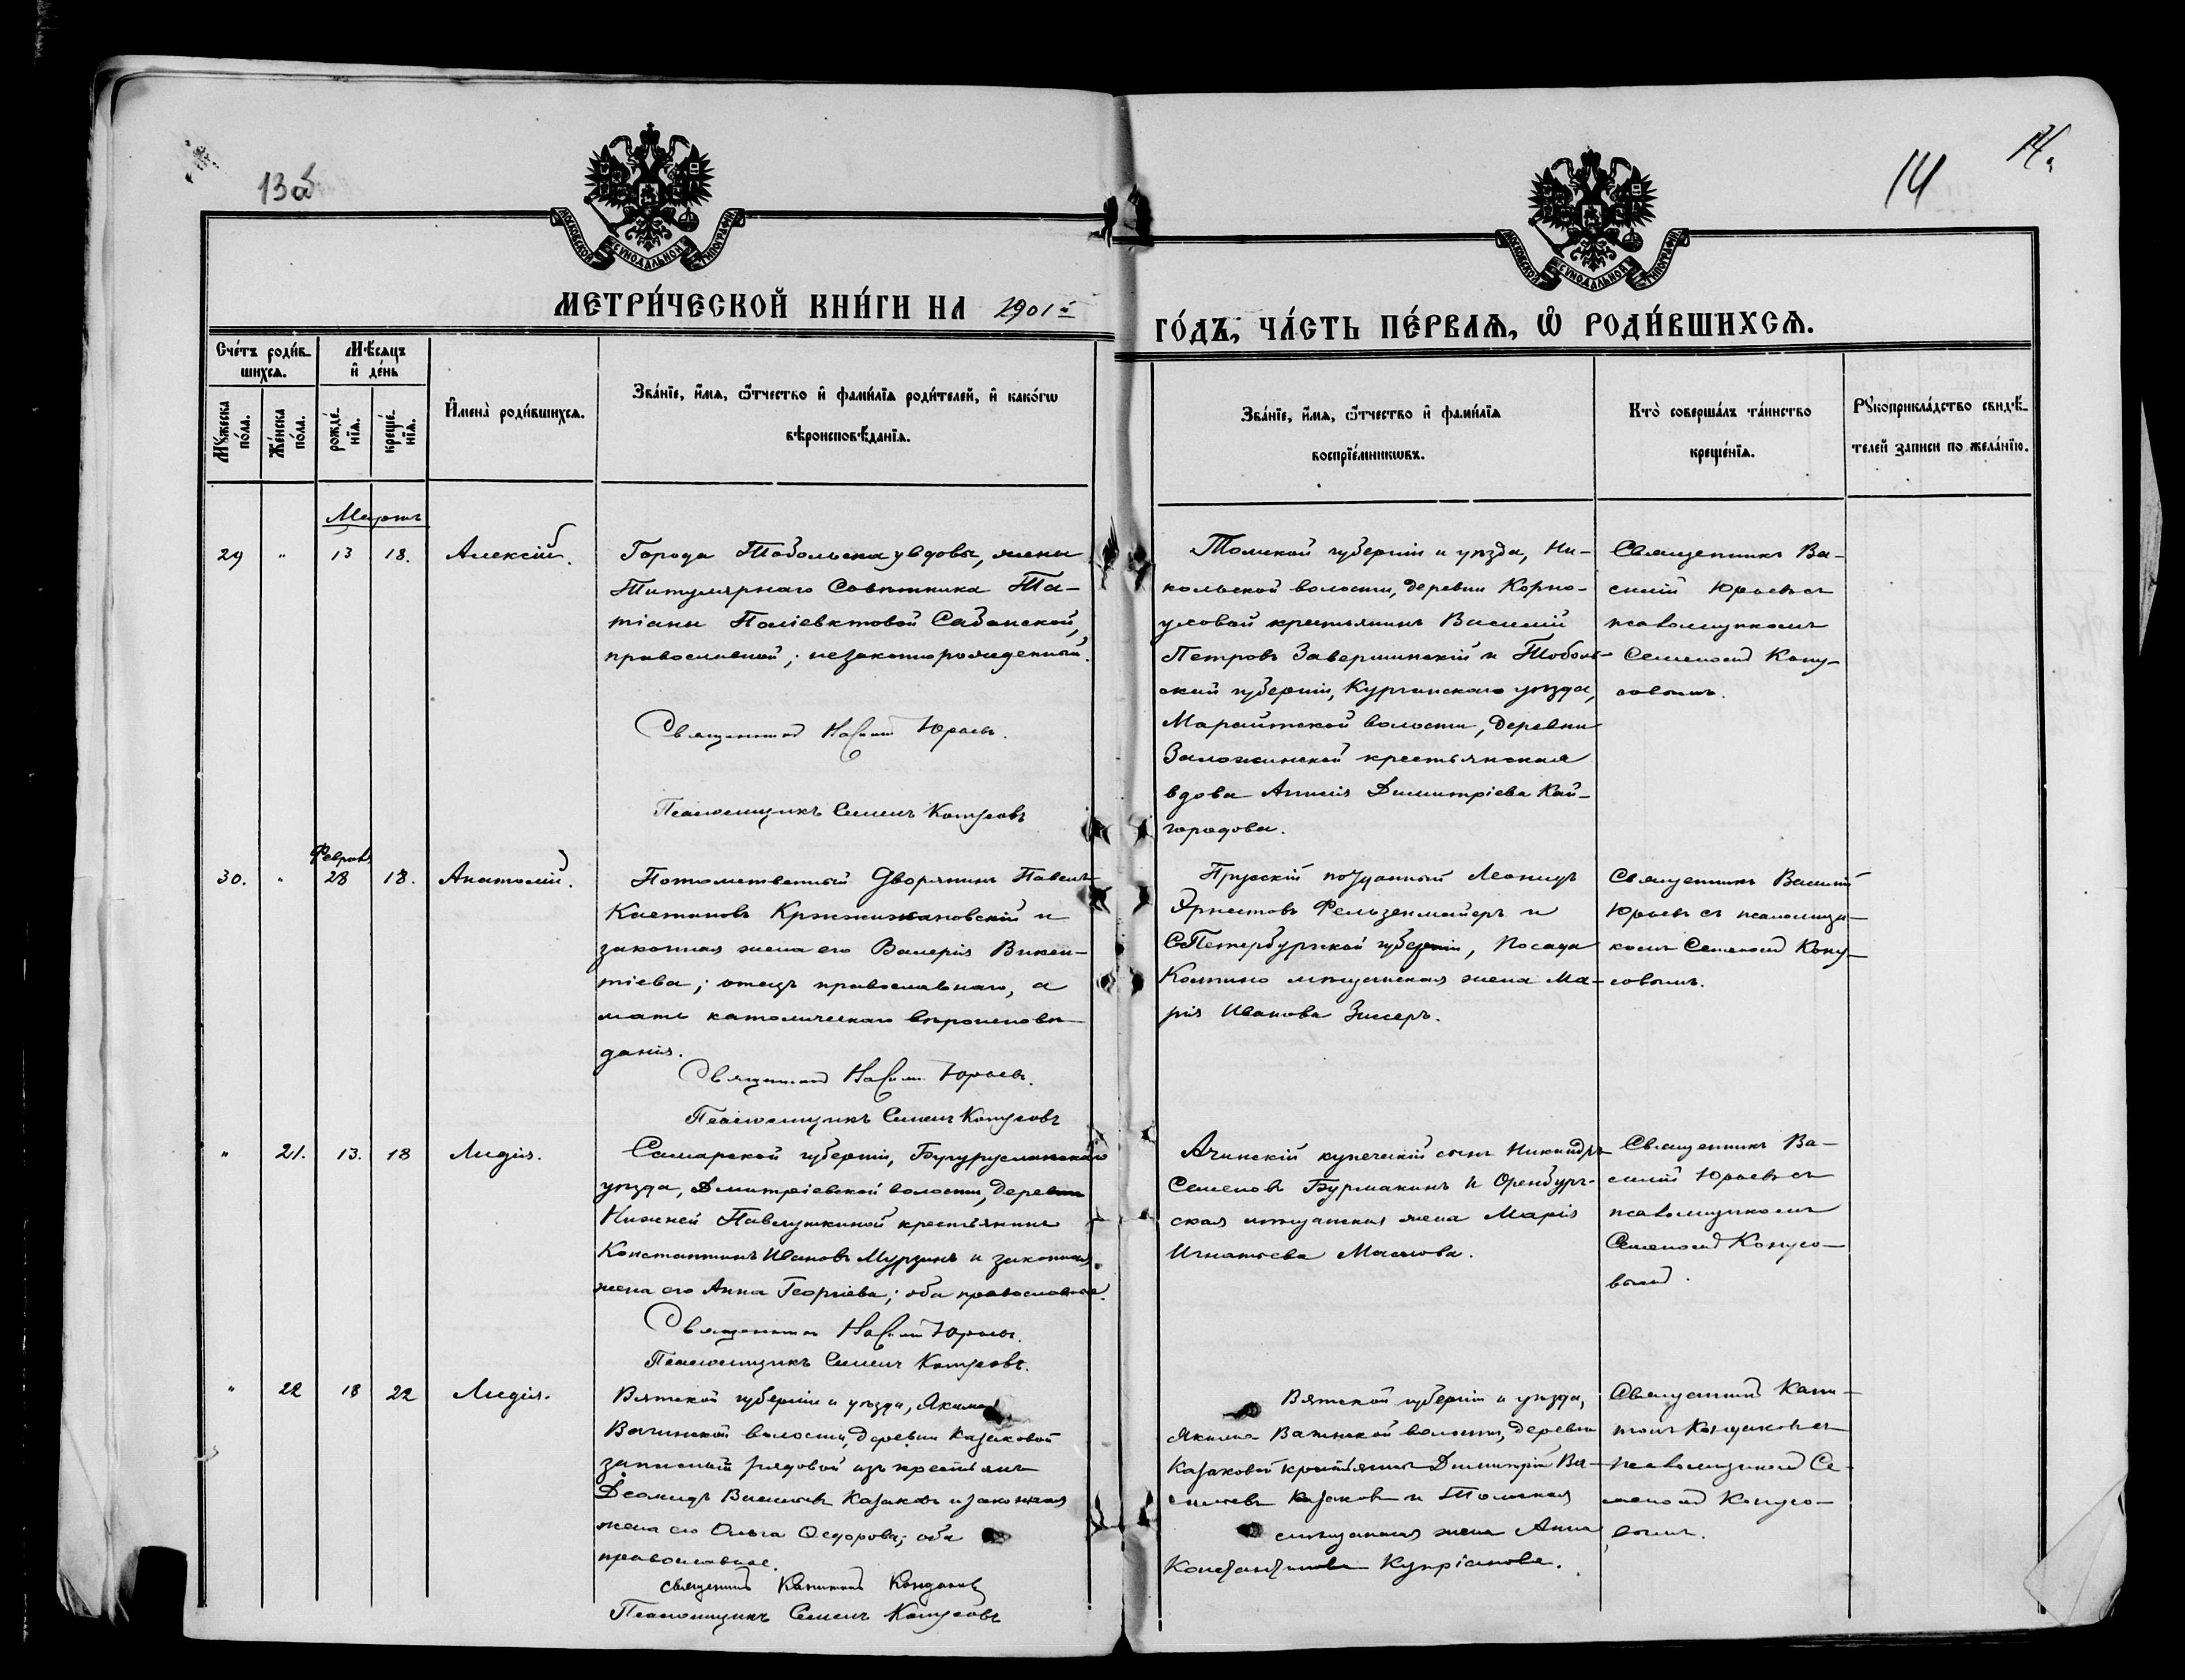 13об
14
14.
МОСКОВСКОЙ СѴНОДАЛЬНОЙ ТИПОГРАФІИ
МОСКОВСКОЙ СѴНОДАЛЬНОЙ ТИПОГРАФІИ
МЕТРИ́ЧЕСКОЙ КНИ́ГИ НА 1901й
ГО́ДЪ, ЧА́СТЬ ПЕ́РВАѦ, Ѡ҆ РОДИ́ВШИХСѦ.
Сче́тъ роди́в-
шихсѧ.
Мѣ́сяцъ
и҆ де́нь
Мꙋ́жеска
по́ла.
Же́нска
по́ла.
рожде́-
нїѧ.
креще́-
нїѧ.
И҆мена̀ роди́вшихсѧ.
Зва́нїе, и҆́мѧ, ѻ҆́тчество и҆ фамѝлїѧ роди́телей, и҆ како́гѡ
вѣроисповѣ́данїѧ.
Зва́нїе, и҆́мѧ, ѻ҆́тчество и҆ фами́лїѧ
воспрїе́мникѡвъ.
Кто̀ соверша́лъ та́инство
креще́нїѧ.
Рꙋкоприкла́дство свидѣ́-
телей записи по жела́нїю.
Мартъ
29 " 13 18. Алексій.
Города Тобольска у вдовы, жены
Титулярнаго Совѣтника Та-
тіаны Поліевктовой Сабанской,
православной; незаконнорожденный.
Священникъ Василій Юрьевъ.
Псаломщикъ Семенъ Конусовъ
Томской губерніи и уѣзда, Ни-
кольской волости, деревни Корно-
усовой крестьянинъ Василій
Петровъ Завершинскій и Тоболь-
ской губерніи, Курганскаго уѣзда,
Марайтской волости, деревни
Заложинской крестьянская
вдова Димитріева Кай-
городова.
Священникъ Ва-
силій Юрьевъ съ
псаломщикомъ
Семеномъ Кону-
совымъ.
30. " Февраля 28 18. Анатолій.
Потомственный Дворянинъ Павелъ
Каетановъ Кржижановскій и
законная жена его Валерія Викен-
тіева; отецъ православнаго, а
мать католическаго вѣроисповѣ-
данія.
Священникъ Василій Юрьевъ.
Псаломщикъ Семенъ Конусовъ
Прусскій подданный Леонидъ
Эрнестовъ Фельзенмайеръ и
СПетербургской губерніи, Посада
Колпино мѣщанская жена Ма-
рія Иванова Зиссеръ.
Священникъ Василій
Юрьевъ съ псаломщи-
комъ Семеномъ Кону-
совымъ.
" 21. 13. 18 Лидія.
Самарской губерніи, Бугурусланскаго
уѣзда, Дмитріевской волости, деревни
Нижней Павлушкиной крестьянинъ
Константинъ Ивановъ Мурзинъ и законная
жена его Анна Георгіева; оба православные.
Священникъ Василій Юрьевъ.
Псаломщикъ Семенъ Конусовъ.
Ачинскій купеческій сынъ Никандръ
Семеновъ Бурмакинъ и Оренбург-
ская мѣщанская жена Марія
Игнатьева Маслова.
Священникъ Ва-
силій Юрьевъ съ
псаломщикомъ
Семеномъ Конусо-
вымъ.
" 22 18 22 Лидія.
Вятской губерніи и уѣзда, Якимо
Вагинской волости, деревни Казаковой
запасный рядовой изъ крестьянъ
Васильевъ Казаковъ и законная
жена его Ольга Ѳедорова; оба
православные.
Священникъ Капитонъ Кондаковъ
Псаломщикъ Семенъ Конусовъ
Вятской губерніи и уѣзда,
Якимо Вагинской волости, деревни
Казаковой крестьянинъ Димитрій Ва-
сильевъ Казаковъ и Томская
мѣщанская жена Анна
Константинова Купріанова.
Священникъ Капи-
тонъ Кондаковъ съ
псаломщикомъ Се-
меномъ Конусо-
вымъ.